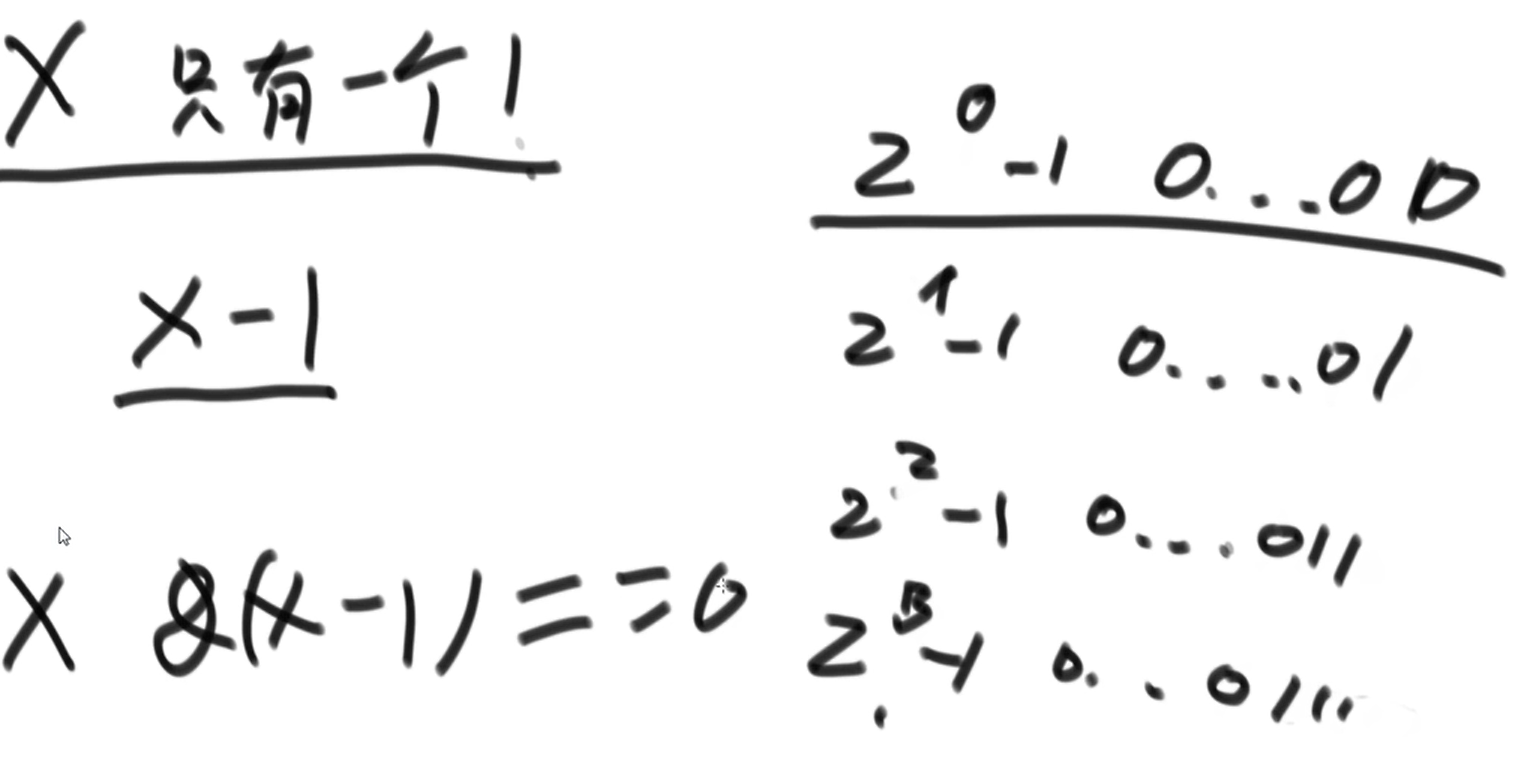 X 只有一个1
x-1
X &(x-1)==0
2^0-1 0...00
2^1-1 0....01
2^2-1 0...011
2^3-1 0...0111